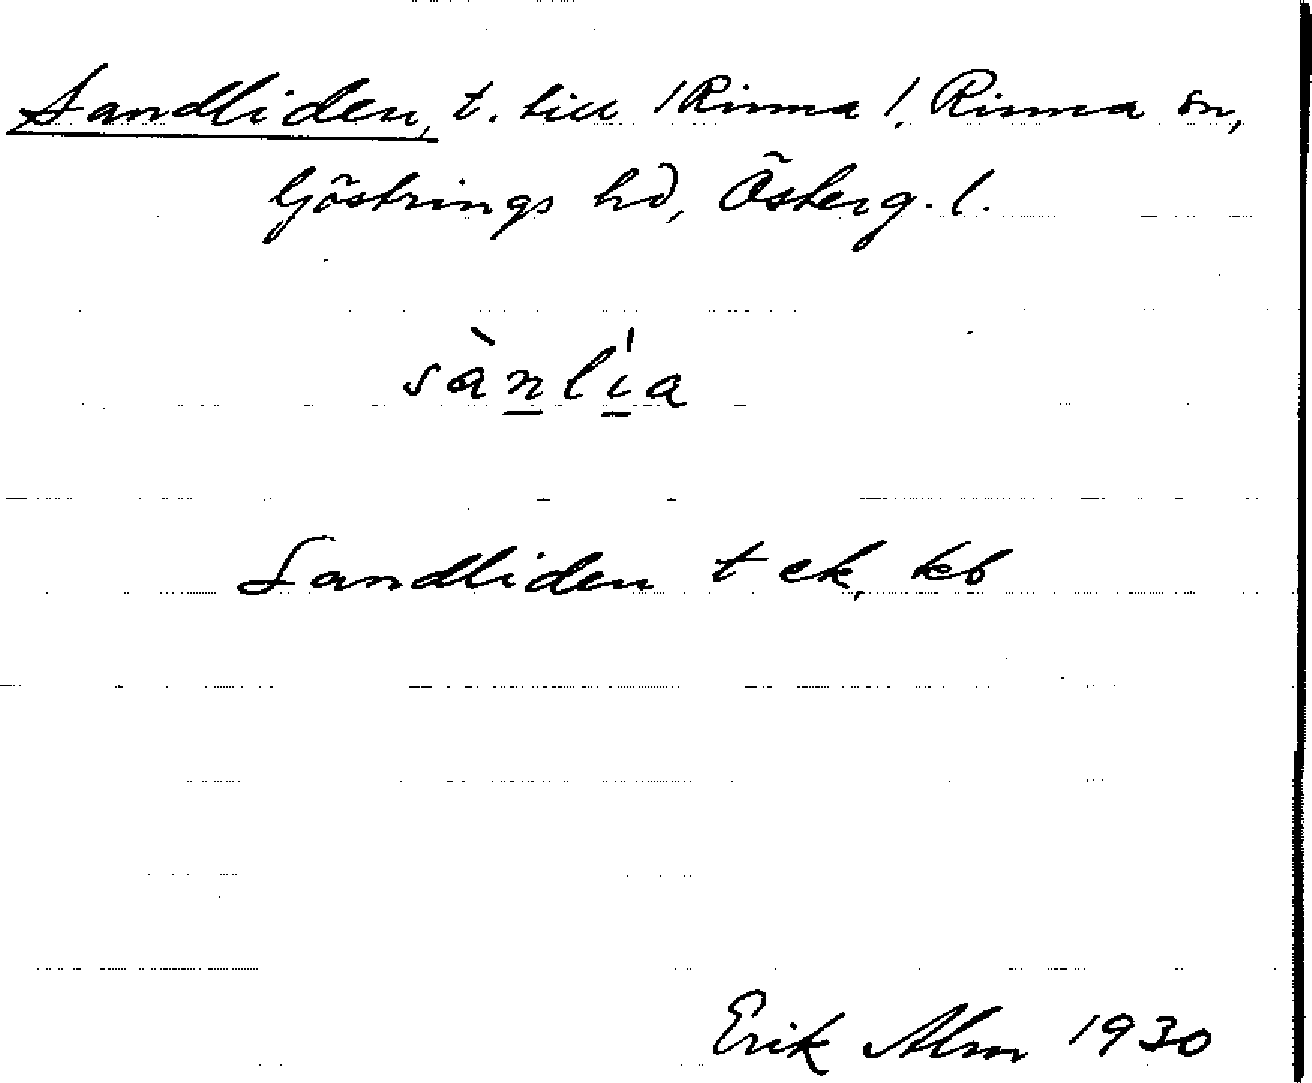 Sandliden, t. till /Rinna /, Rinna sn,
Göstrings hd, Österg. l.
sànlı̍a
Sandliden t ek, kb
Erik Alm 1930